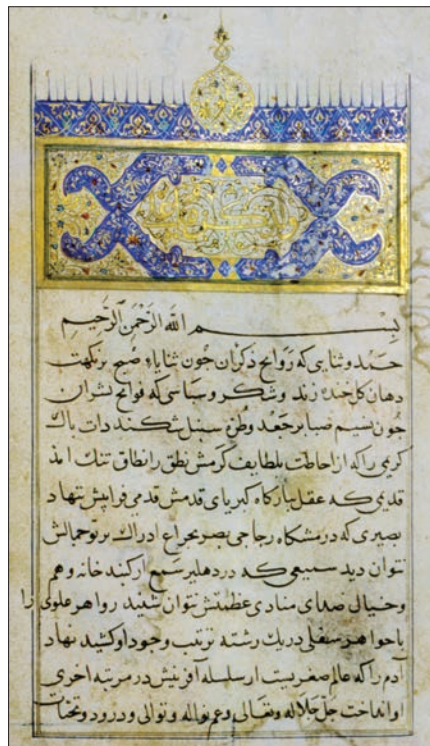 بسم الله الرحمن الرحیم
حمد و ثنایی که روایح ذکر آن جون ثنایاء صبح بر نکهت
دهان کل خنده زند و شکر و سپاسی که فوایح نشر آن
جون نسیم صبا بر جعد وطره سنبل شکند ذات باک
کریمی را که از احاطت بلطایف کرمش نطق را نطاق تنک امذ
قدیمی که عقل ببارکاه کبریای قدمش قدمی فرابیش ننهاد
بصیری که در مشکاه زجاجی بصر بجراغ ادراک برتو جمالش
نتوان دید سمیعی که در دهلیز سمع از کنبد خانه وهم
و خیال صدای منادی عظمتش نتوان شنید زواهر علوی را
با جواهر سفلی در یک رشته ترتیب وجود او کشید نهاد
آدم را که عالم صغریست از سلسله آفرینش در مرتبه اخری
او انداخت جل جلاله و تعالی وعم نواله و توالی و درود و تحیات